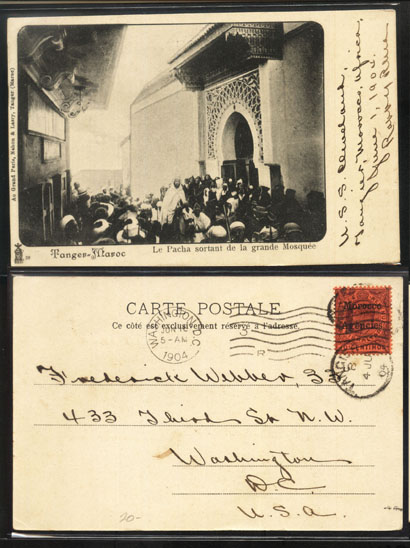 Au Grand Paris, Nahon & Lasry, Tanger (Maroc)
Tanger-Maroc
Le Pacha sortant de la grande Mosquée
U.S.S. Cleveland,
Tangier, Morocco, Africa,
June 1, 1904.
CARTE POSTALE
Ce côté est exclusivement réservé à l'adresse.
WASHINGTON, D.C.
5-AM
1904
R
Morocco
Agencies
4 JU
04
Frederick Webber, 3d
433 Third St. N.W.
Washington
D.C.
U.S.A.
20-